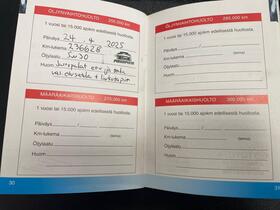 ÖLJYNVAIHTOHUOLTO 255.000 km
1 vuosi tai 15.000 ajokm edellisestä huollosta.
Päiväys 24. 4 2025
Km-lukema 236628
Öljylaatu 5w30
Huom
MÄÄRÄAIKAISHUOLTO 270.000 km
1 vuosi tai 15.000 ajokm edellisestä huollosta.
Päiväys
Km-lukema (leima)
Öljylaatu
Huom
30
ÖLJYNVAIHTOHUOLTO 285.000 km
1 vuosi tai 15.000 ajokm edellisestä huollosta.
Päiväys
Km-lukema (leima)
Öljylaatu
Huom
MÄÄRÄAIKAISHUOLTO 300.000 km
1 vuosi tai 15.000 ajokm edellisestä huollosta.
Päiväys
Km-lukema (leima)
Öljylaatu
Huom
31